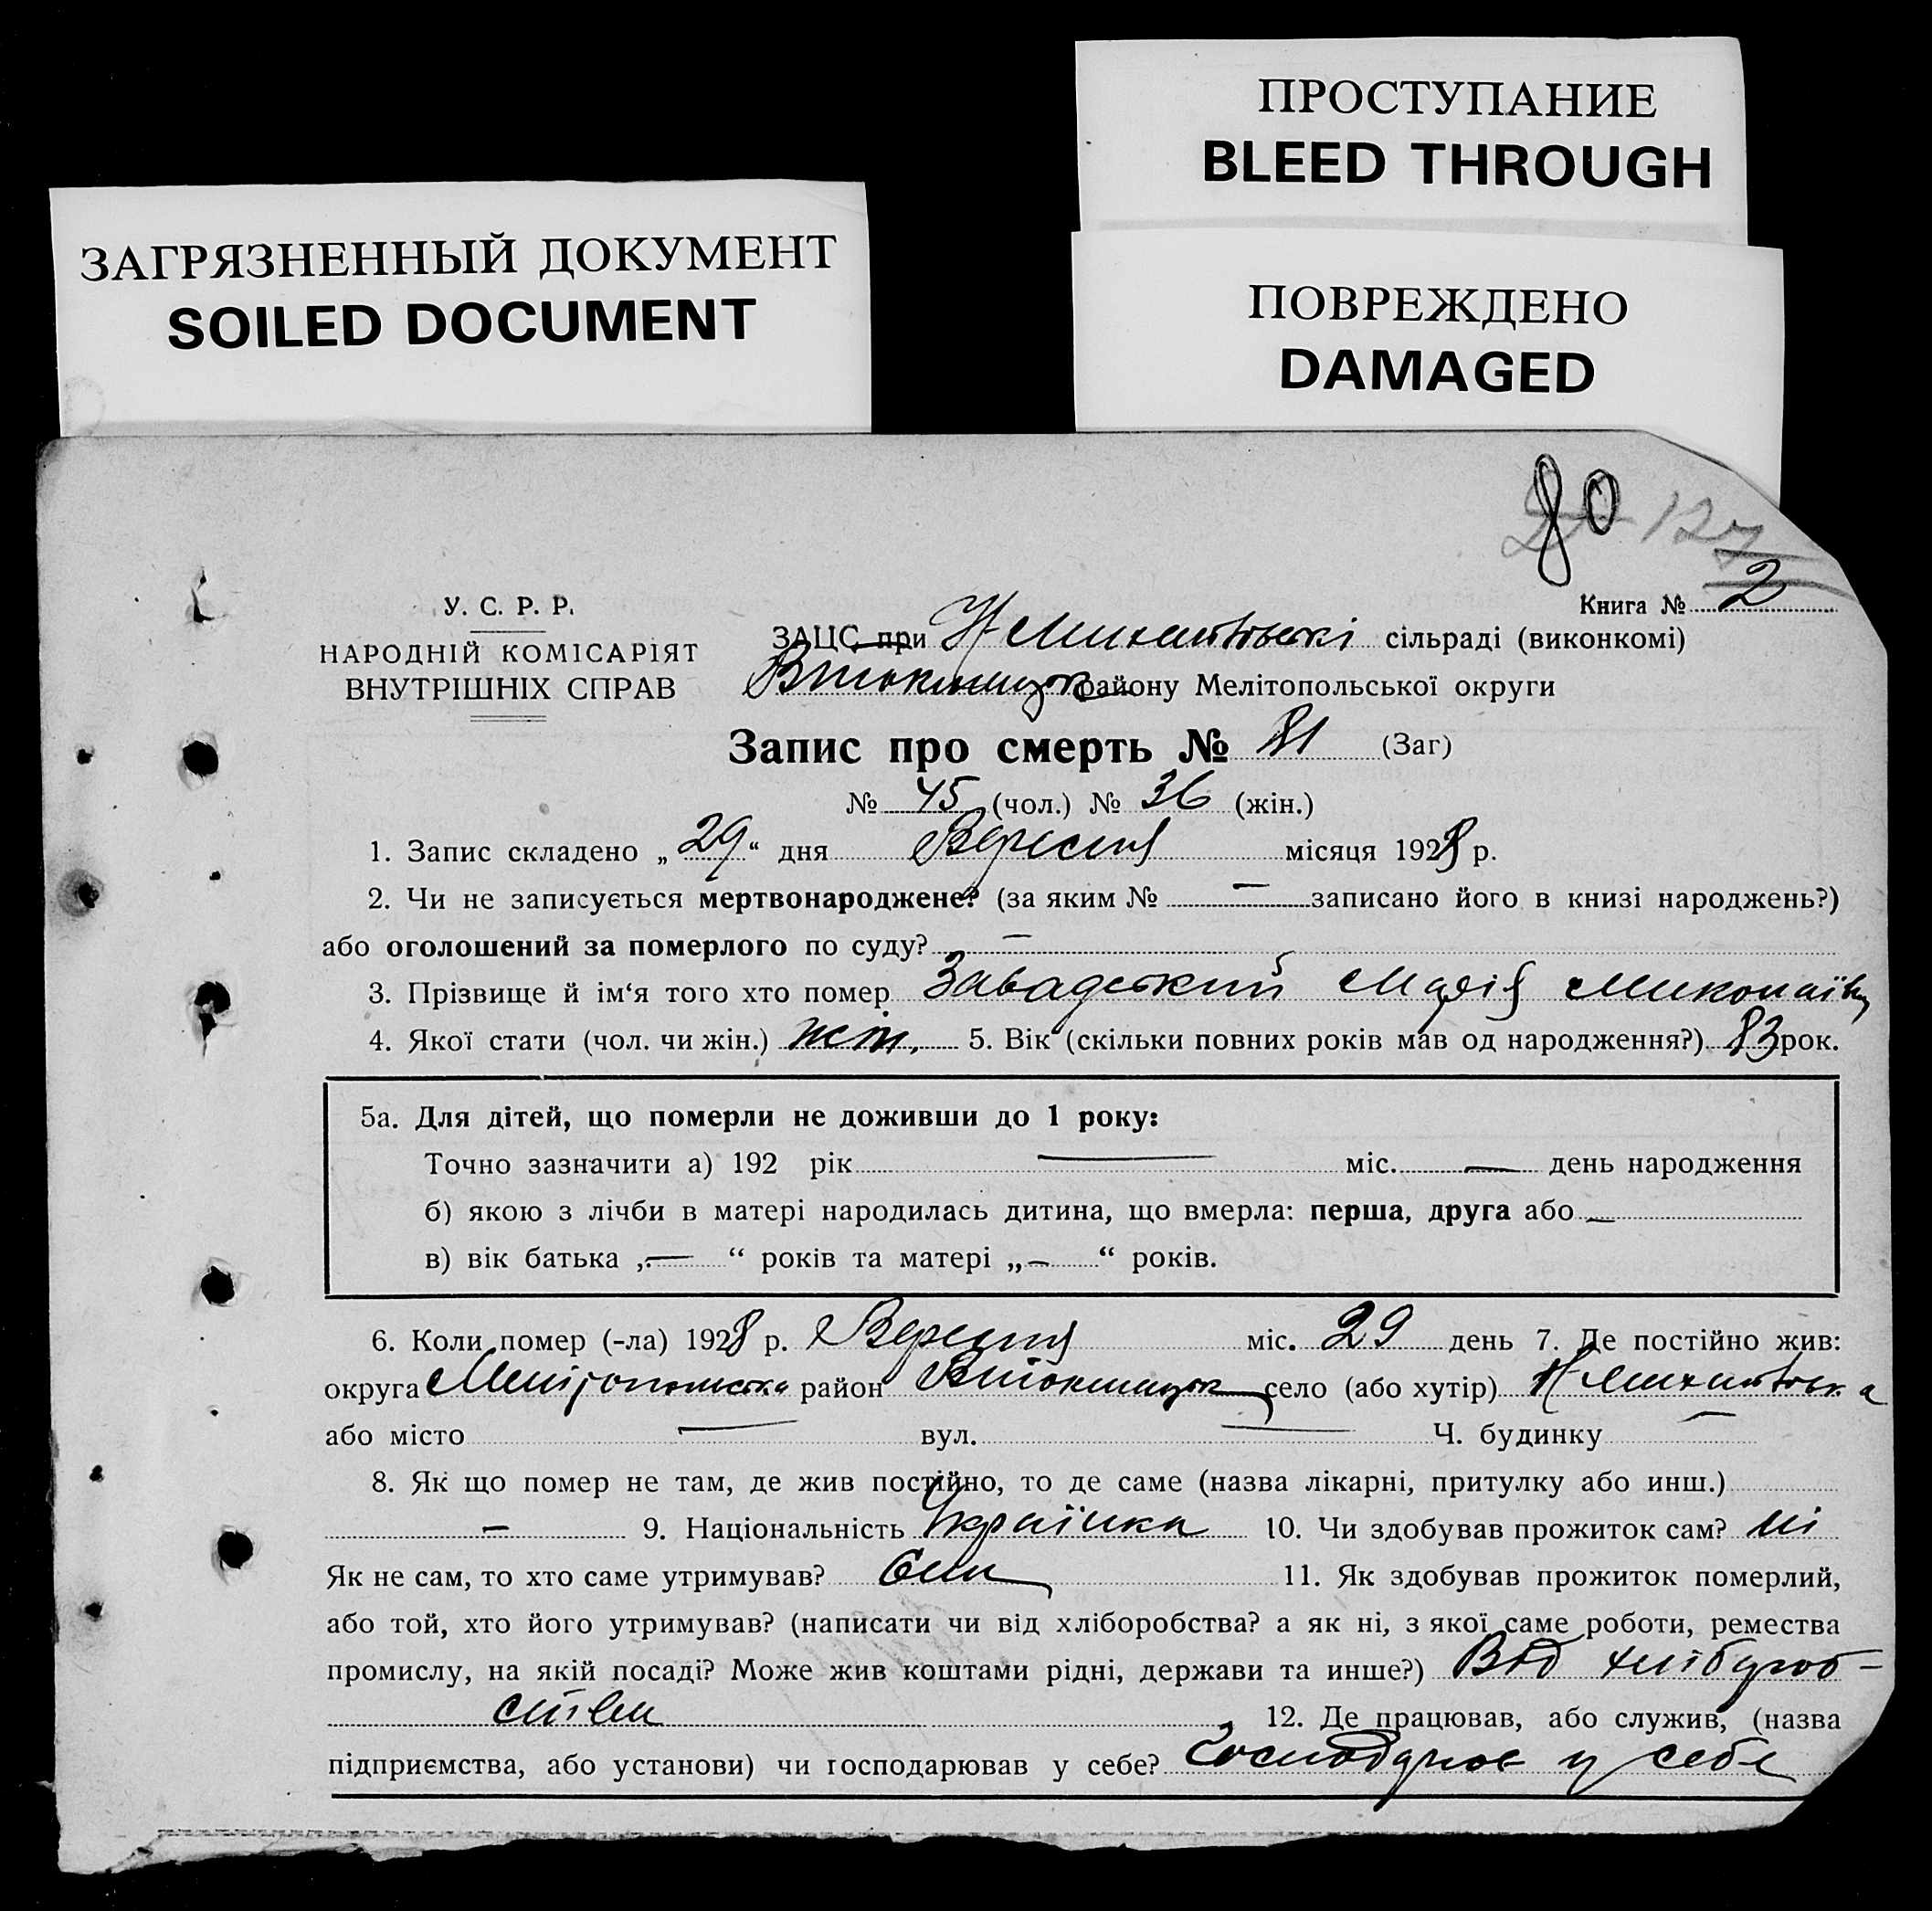 ПРОСТУПАНИЕ
BLEED THROUGH
ЗАГРЯЗНЕННЫЙ ДОКУМЕНТ
SOILED DOCUMENT
ПОВРЕЖДЕНО
DAMAGED
80
127
У. С. Р. Р.
Книга № 2
ЗАЦС при Н сільраді (виконкомі)
НАРОДНІЙ КОМІСАРІЯТ
ВНУТРІШНІХ СПРАВ
району Мелітопольської округи
Запис про смерть № 81 (Заг)
№ 45 (чол.) № 36 (жін.)
1. Запис складено „29“ дня Вересня місяця 1928 р.
2. Чи не записується мертвонароджене? (за яким № — записано його в книзі народжень?)
або оголошений за померлого по суду? —
3. Прізвище й ім‘я того хто помер Завадський Марія Миколаївн
4. Якої стати (чол. чи жін.) жін. 5. Вік (скільки повних років мав од народження?) 83 рок.
5а. Для дітей, що померли не доживши до 1 року:
Точно зазначити а) 192 рік — міс. — день народження
б) якою з лічби в матері народилась дитина, що вмерла: перша, друга або —
в) вік батька „—“ років та матері „—“ років.
6. Коли помер (-ла) 1928 р. Вересня міс. 29 день 7. Де постійно жив:
округа Мелітопольська район село (або хутір) Н
або місто — вул. — Ч. будинку —
8. Як що помер не там, де жив постійно, то де саме (назва лікарні, притулку або инш.)
— 9. Національність Українка 10. Чи здобував прожиток сам? ні
Як не сам, то хто саме утримував? Син 11. Як здобував прожиток померлий,
або той, хто його утримував? (написати чи від хліборобства? а як ні, з якої саме роботи, ремества
промислу, на якій посаді? Може жив коштами рідні, держави та инше?) Від хлібороб-
ства 12. Де працював, або служив, (назва
підприємства, або установи) чи господарював у себе? Господарює у себе